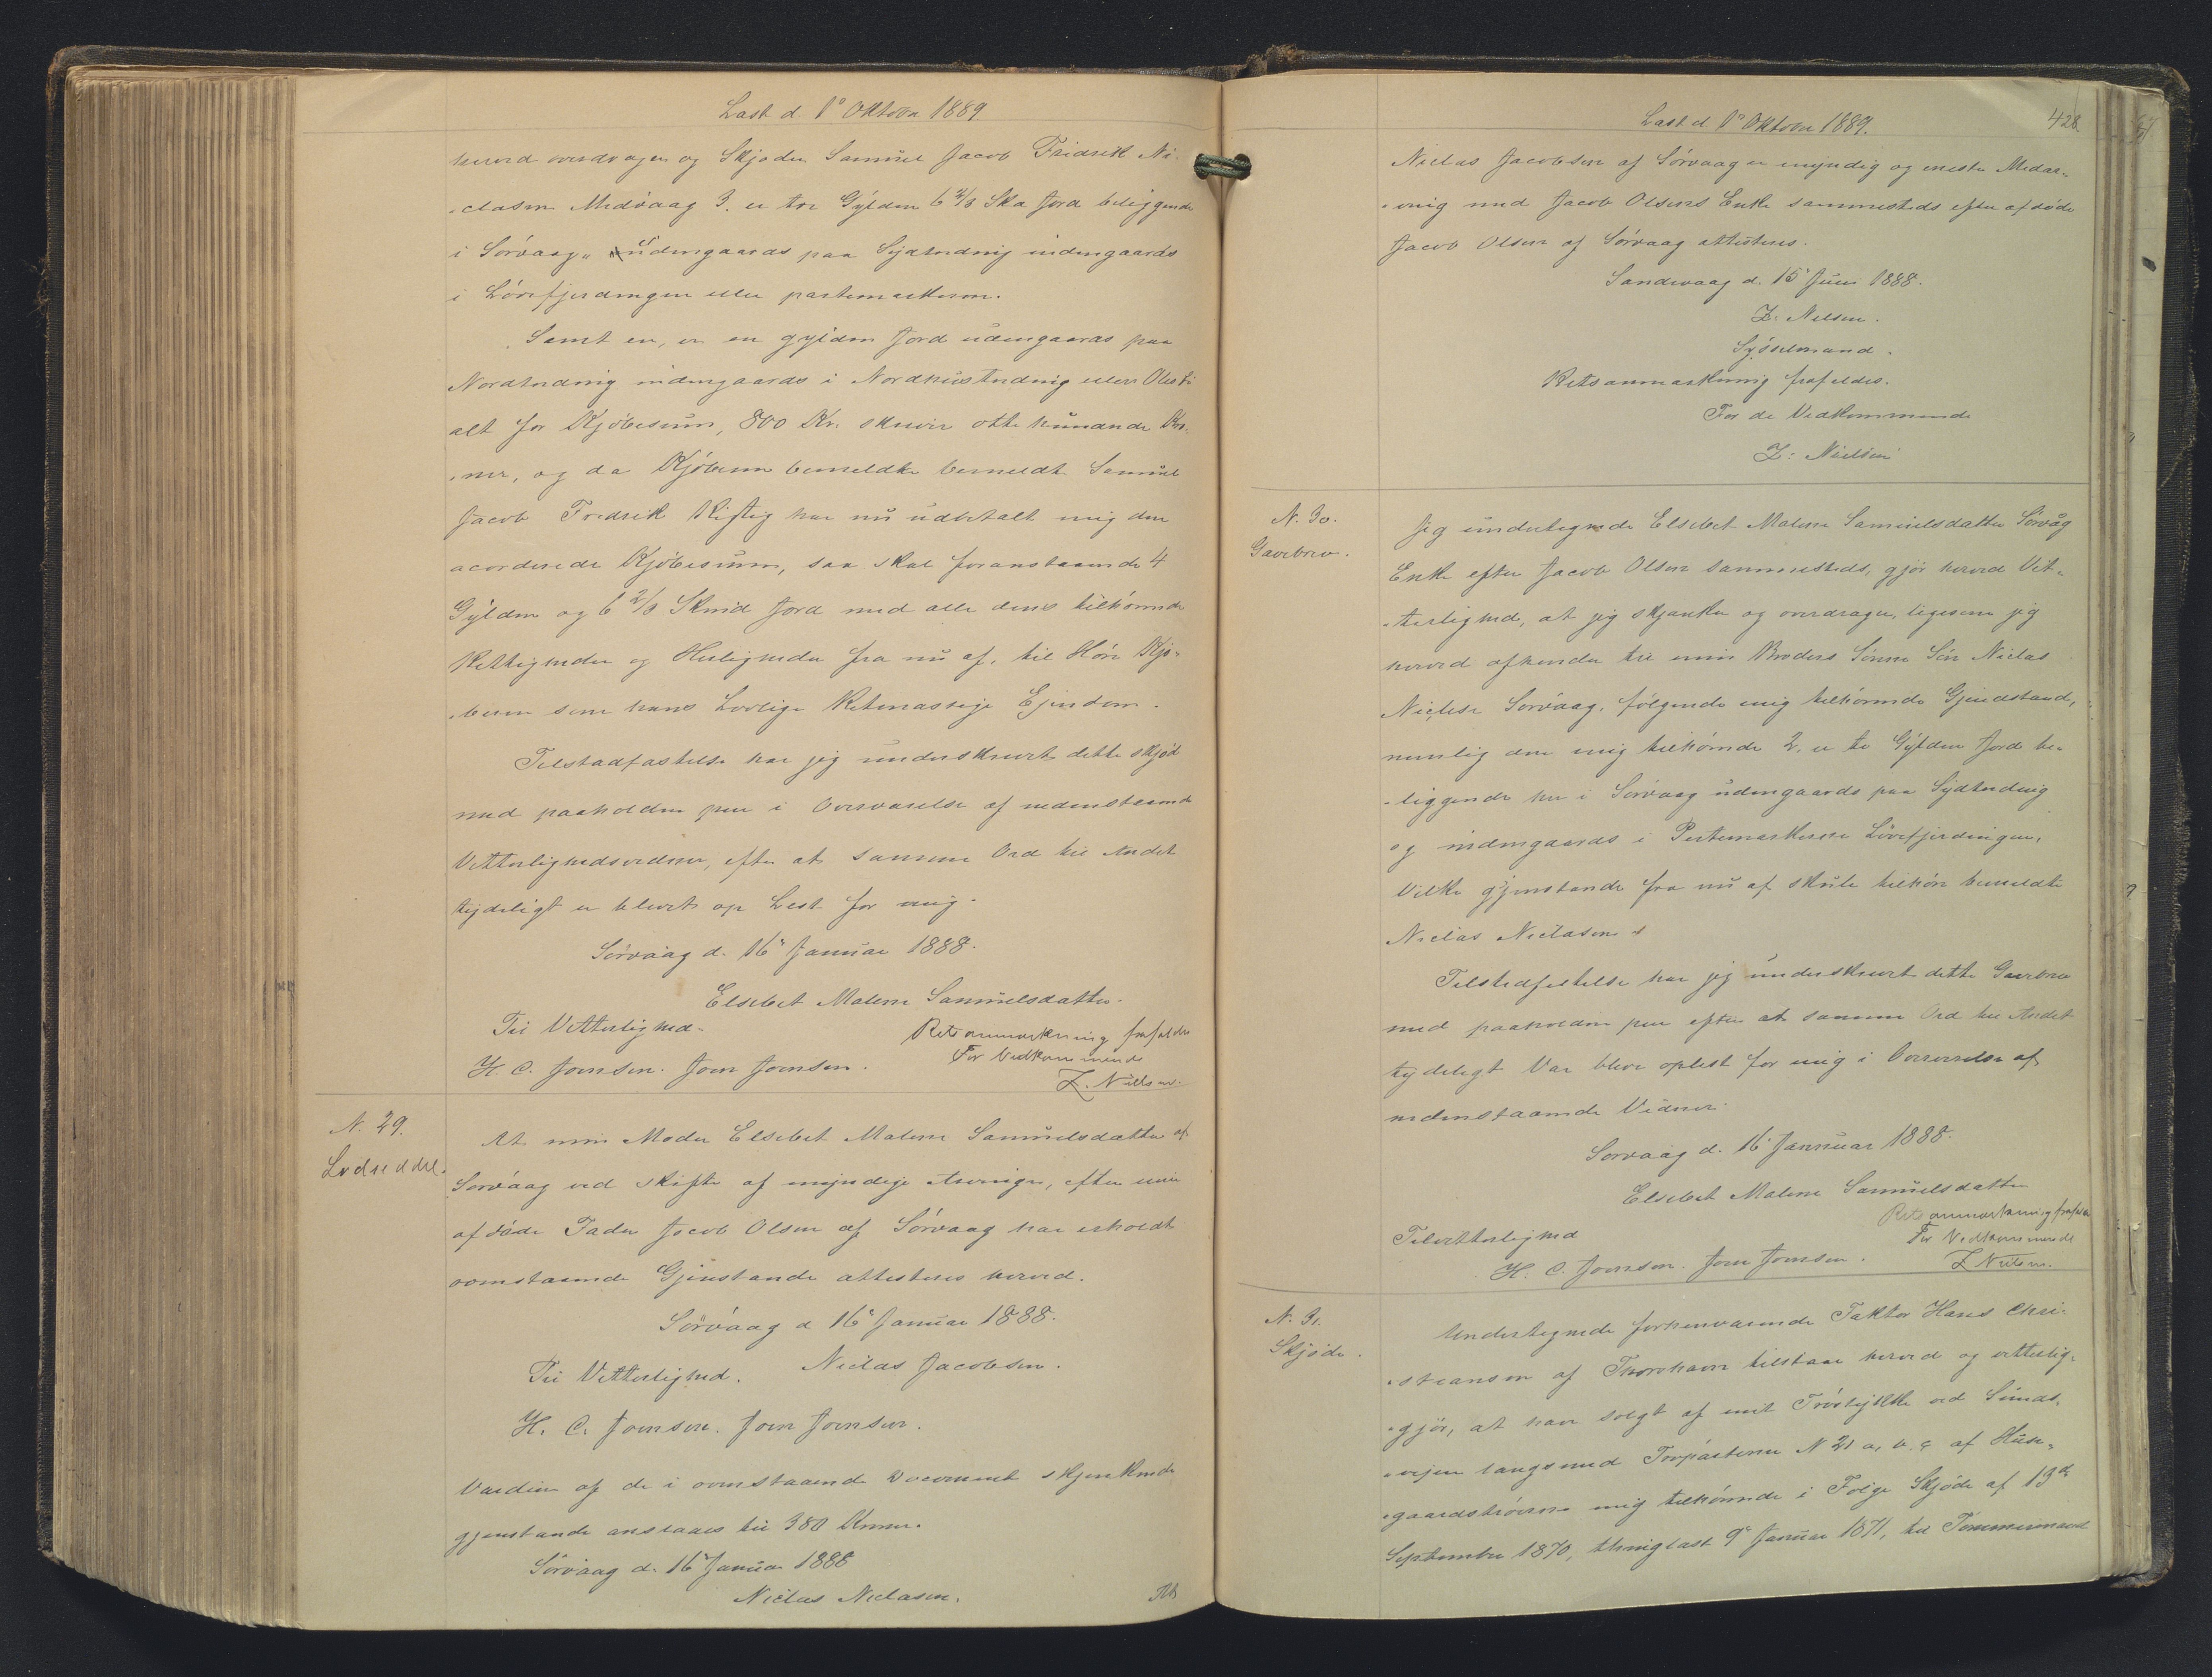 Læst d. 1ᵒ Oktober 1889
herved overdrager og Skjøder Samuel Jacob Fridrik Ni-
-clasen Midvaag 3. er tre Gylden 6 2/3 Sk. Jord beliggende
i Sørvaag, udengaards paa Sydtrednig indengaards
i Lóvefjerdingen eller partemarkerne.
Samt en, er en gylden Jord udengaards paa
Nordtredning indengaards i Nordhustredning eller
alt for Kjøbesum, 800 Kr. skriver otte hundrede Kro-
-ner, og da Kjøberen bemeldte bemeldt Samuel
Jacob Fredrik Rigtig har nu udbetalt mig den
acorderede Kjøbesum, saa skal foranstaaende 4
Gylden og 6 2/3 Skind Jord med alle dens tilhørende
Rettigheder og Herligheder fra nu af, til Høre Kjø-
-beren som hans Lovlige Retmæssige Ejendom.
Tilstadfæstelse har jeg underskrevet dette skjød
med paaholden pen i Overværelse af nedenstaaende
Vitterlighedsvidner, efter at samme Ord til Andet
tydeligt er blevet op Læst for mig.
Sørvaag d. 16ᵉ Januar 1888.
Elsebet Malene Samuelsdatter.
Til Vitterlighed.
Retsanmærkning frafaldes
For Vedkommende
H. C. Joensen. Joen Joensen.
Z. Nielsen.
N. 29.
Lodseddel.
At min Moder Elsebet Malene Samuelsdatter af
Sørvaag ved skifte af myndige Arvinger, efter min
afdøde Fader Jacob Olsen af Sørvaag har erholdt
ovenstaaende Gjenstande attesteres herved.
Sørvaag d 16ᵉ Januar 1888.
Til Vitterlighed. Niclas Jacobsen.
H. C. Joensen. Joen Joensen.
Værdien af de i ovenstaaende Document skjenkende
gjenstande anslaaes til 380 Kroner.
Sørvaag d. 16ᵉ Januar 1888
Niclas Niclasen.
Læst d. 1ᵒ Oktober 1889.
428
Niclas Jacobsen af Sørvaag er myndig og eneste Medar-
-ving med Jacob Olsens Enke sammesteds efter afdøde
Jacob Olsen af Sørvaag attesteres.
Sandevaag d. 15ᵉ Juni 1888.
Z. Nielsen.
Sysselmand.
Retsanmærkning frafaldes.
For de Vedkommende
Z. Nielsen
N. 30.
Gavebrev.
Jeg undertegnede Elsebet Malene Samuelsdatter Sørvåg
Enke efter Jacob Olsen sammesteds, gjör herved Vit-
-terlighed, at jeg skjænker og overdrager, ligesom jeg
herved afhender til min Broders Sönne Sön Niclas
Niclesen Sørvaag, følgende mig tilhörende Gjendstand,
nemlig den mig tilhörende 2. er to Gylden Jord be-
-liggende her i Sørvaag udengaards paa Sydtrednig
og indengaards i Partemarkerne Lövefjerdingen,
Vilke gjenstande fra nu af skule tilhöre bemeldte
Niclas Niclasen
Tilstedfestelse har jeg underskrevet dette Gavebrev
med paaholden pen efter at samme Ord til Andet
tydeligt Var bleve oplæst for mig i Overværelse af
nedenstaaende Vidner.
Sorvaag d. 16ᵉ Januar 1888.
Elsebet Malene Samuelsdatter
Retsanmærkning frafaldes
Tilvitterlighed
For Vedkommende
H. C. Joensen. Joen Joensen.
Z Nielsen.
N. 31.
Skjøde.
Undertegnede forhenværende Faktor Hans Chri-
-stiansen af Thorshavn tilstaar herved og vitterlig-
-gjör, at have solgt af mit Tróstykke ved Sunds-
-vejen langsmed Tróparterne N 21 a, b, c af Huse-
-gaardstróerne mig tilhörende i Følge Skjøde af 13ᵈᵉ
September 1870, thinglæst 9ᵉ Januar 1871, til Tømmermand